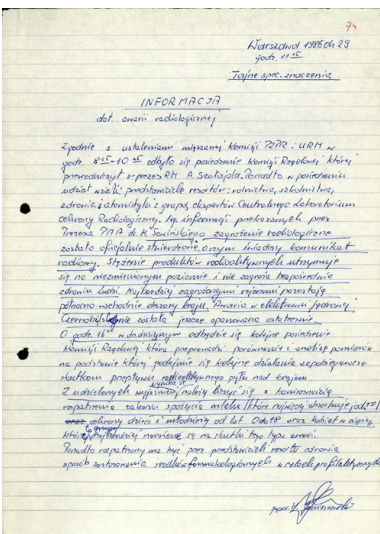 74
Warszawa 1986 04 29
godz. 11 15
Tajne spec. znaczenia
INFORMACJA
dot. awarii radiologicznej
Zgodnie z ustaleniami mieszanej Komisji PZPR i URM w
godz. 8 45 - 10 45 odbyło się posiedzenie Komisji Rządowej, której
przewodniczył v-prezes RM A. Szałajda. Ponadto w posiedzeniu
udział wzięli przedstawiciele resortów: rolnictwa, szkolnictwa,
zdrowia i atomistyki z grupą ekspertów Centralnego Laboratorium
Ochrony Radiologicznej. Wg informacji przekazanych przez
Prezesa PAA dr. M. Sowińskiego zagrożenie radiologiczne
zostało oficjalnie stwierdzone, o czym świadczy komunikat
radiowy. Stężenie produktów radioaktywnych utrzymuje
się na niezmienionym poziomie i nie zagraża bezpośrednio
zdrowiu ludzi. Najbardziej zagrożonymi rejonami pozostają
północno-wschodnie obszary kraju. Awaria w elektrowni jądrowej
Czernobyl nie została jeszcze opanowana ostatecznie.
O godz. 16 w dniu dzisiejszym odbędzie się kolejne posiedzenie
Komisji Rządowej, która przeprowadzi porównanie i analizę pomiarów
na podstawie której podejmie się kolejne działania zapobiegawcze
skutkom przepływu radioaktywnego pyłu nad krajem.
Z udzielonych wyjaśnień należy liczyć się z koniecznością
rozpatrzenia zakazu spożycia mleka /które najwięcej absorbuje jod 131/
oraz ochrony dzieci i młodzieży od lat 0 do 18 oraz kobiet w ciąży,
które najbardziej narażone są na skutki tego typu awarii.
Ponadto rozpatrzony ma być przez przedstawicieli resortu zdrowia
sposób zastosowania środków farmakologicznych w celach profilaktycznych.